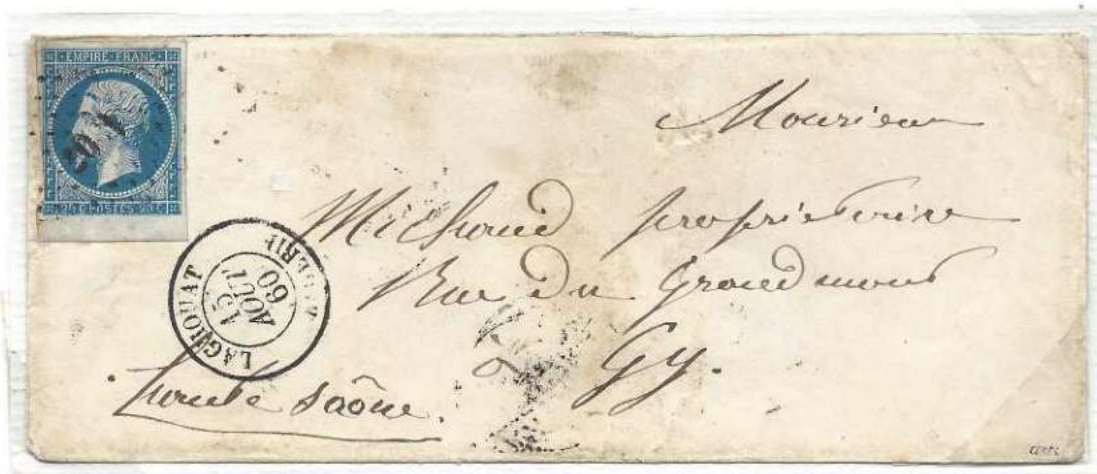 EMPIRE FRANC
20 C POSTES 20 C
LAGHOUAT
ALGERIE
15
AOUT
60
Monsieur
Michaud propriétaire
Rue du Grand mont
à Gy.
haute saône.